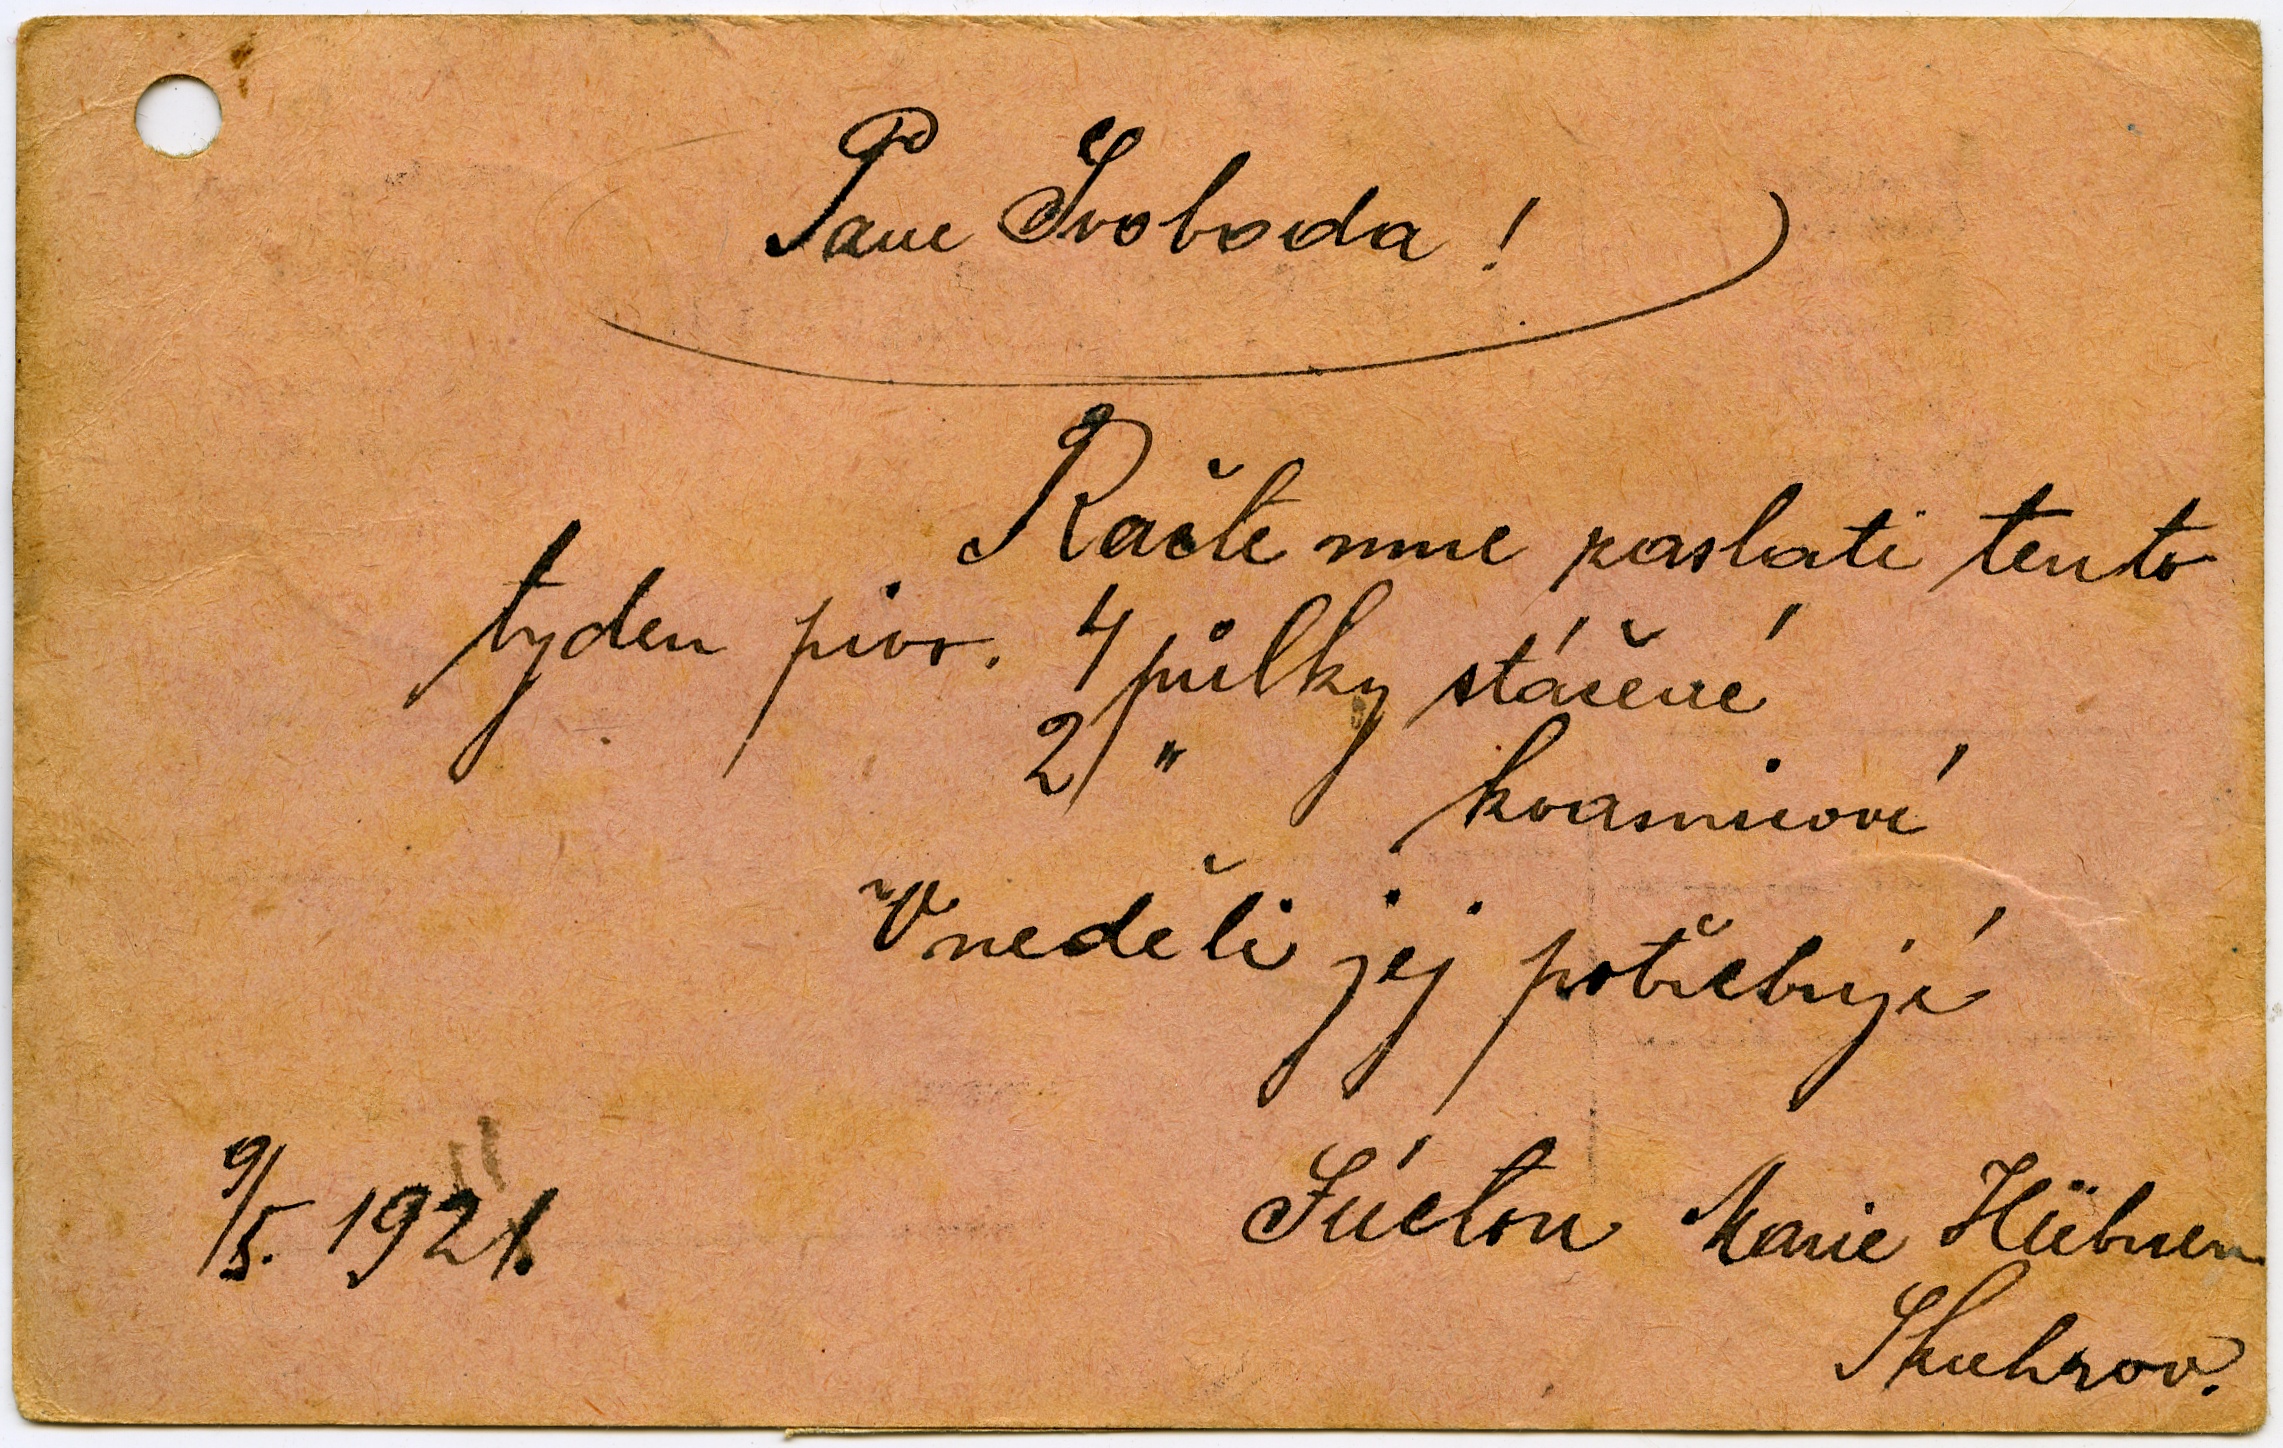 Pane Svoboda!
Račte mne poslati tento
tyden pivo. 4 půlky stáčené
2 " kvasnicové
V neděli jej potřebuji
9/5. 1921. S úctou Marie Hübner
Skuhrov.